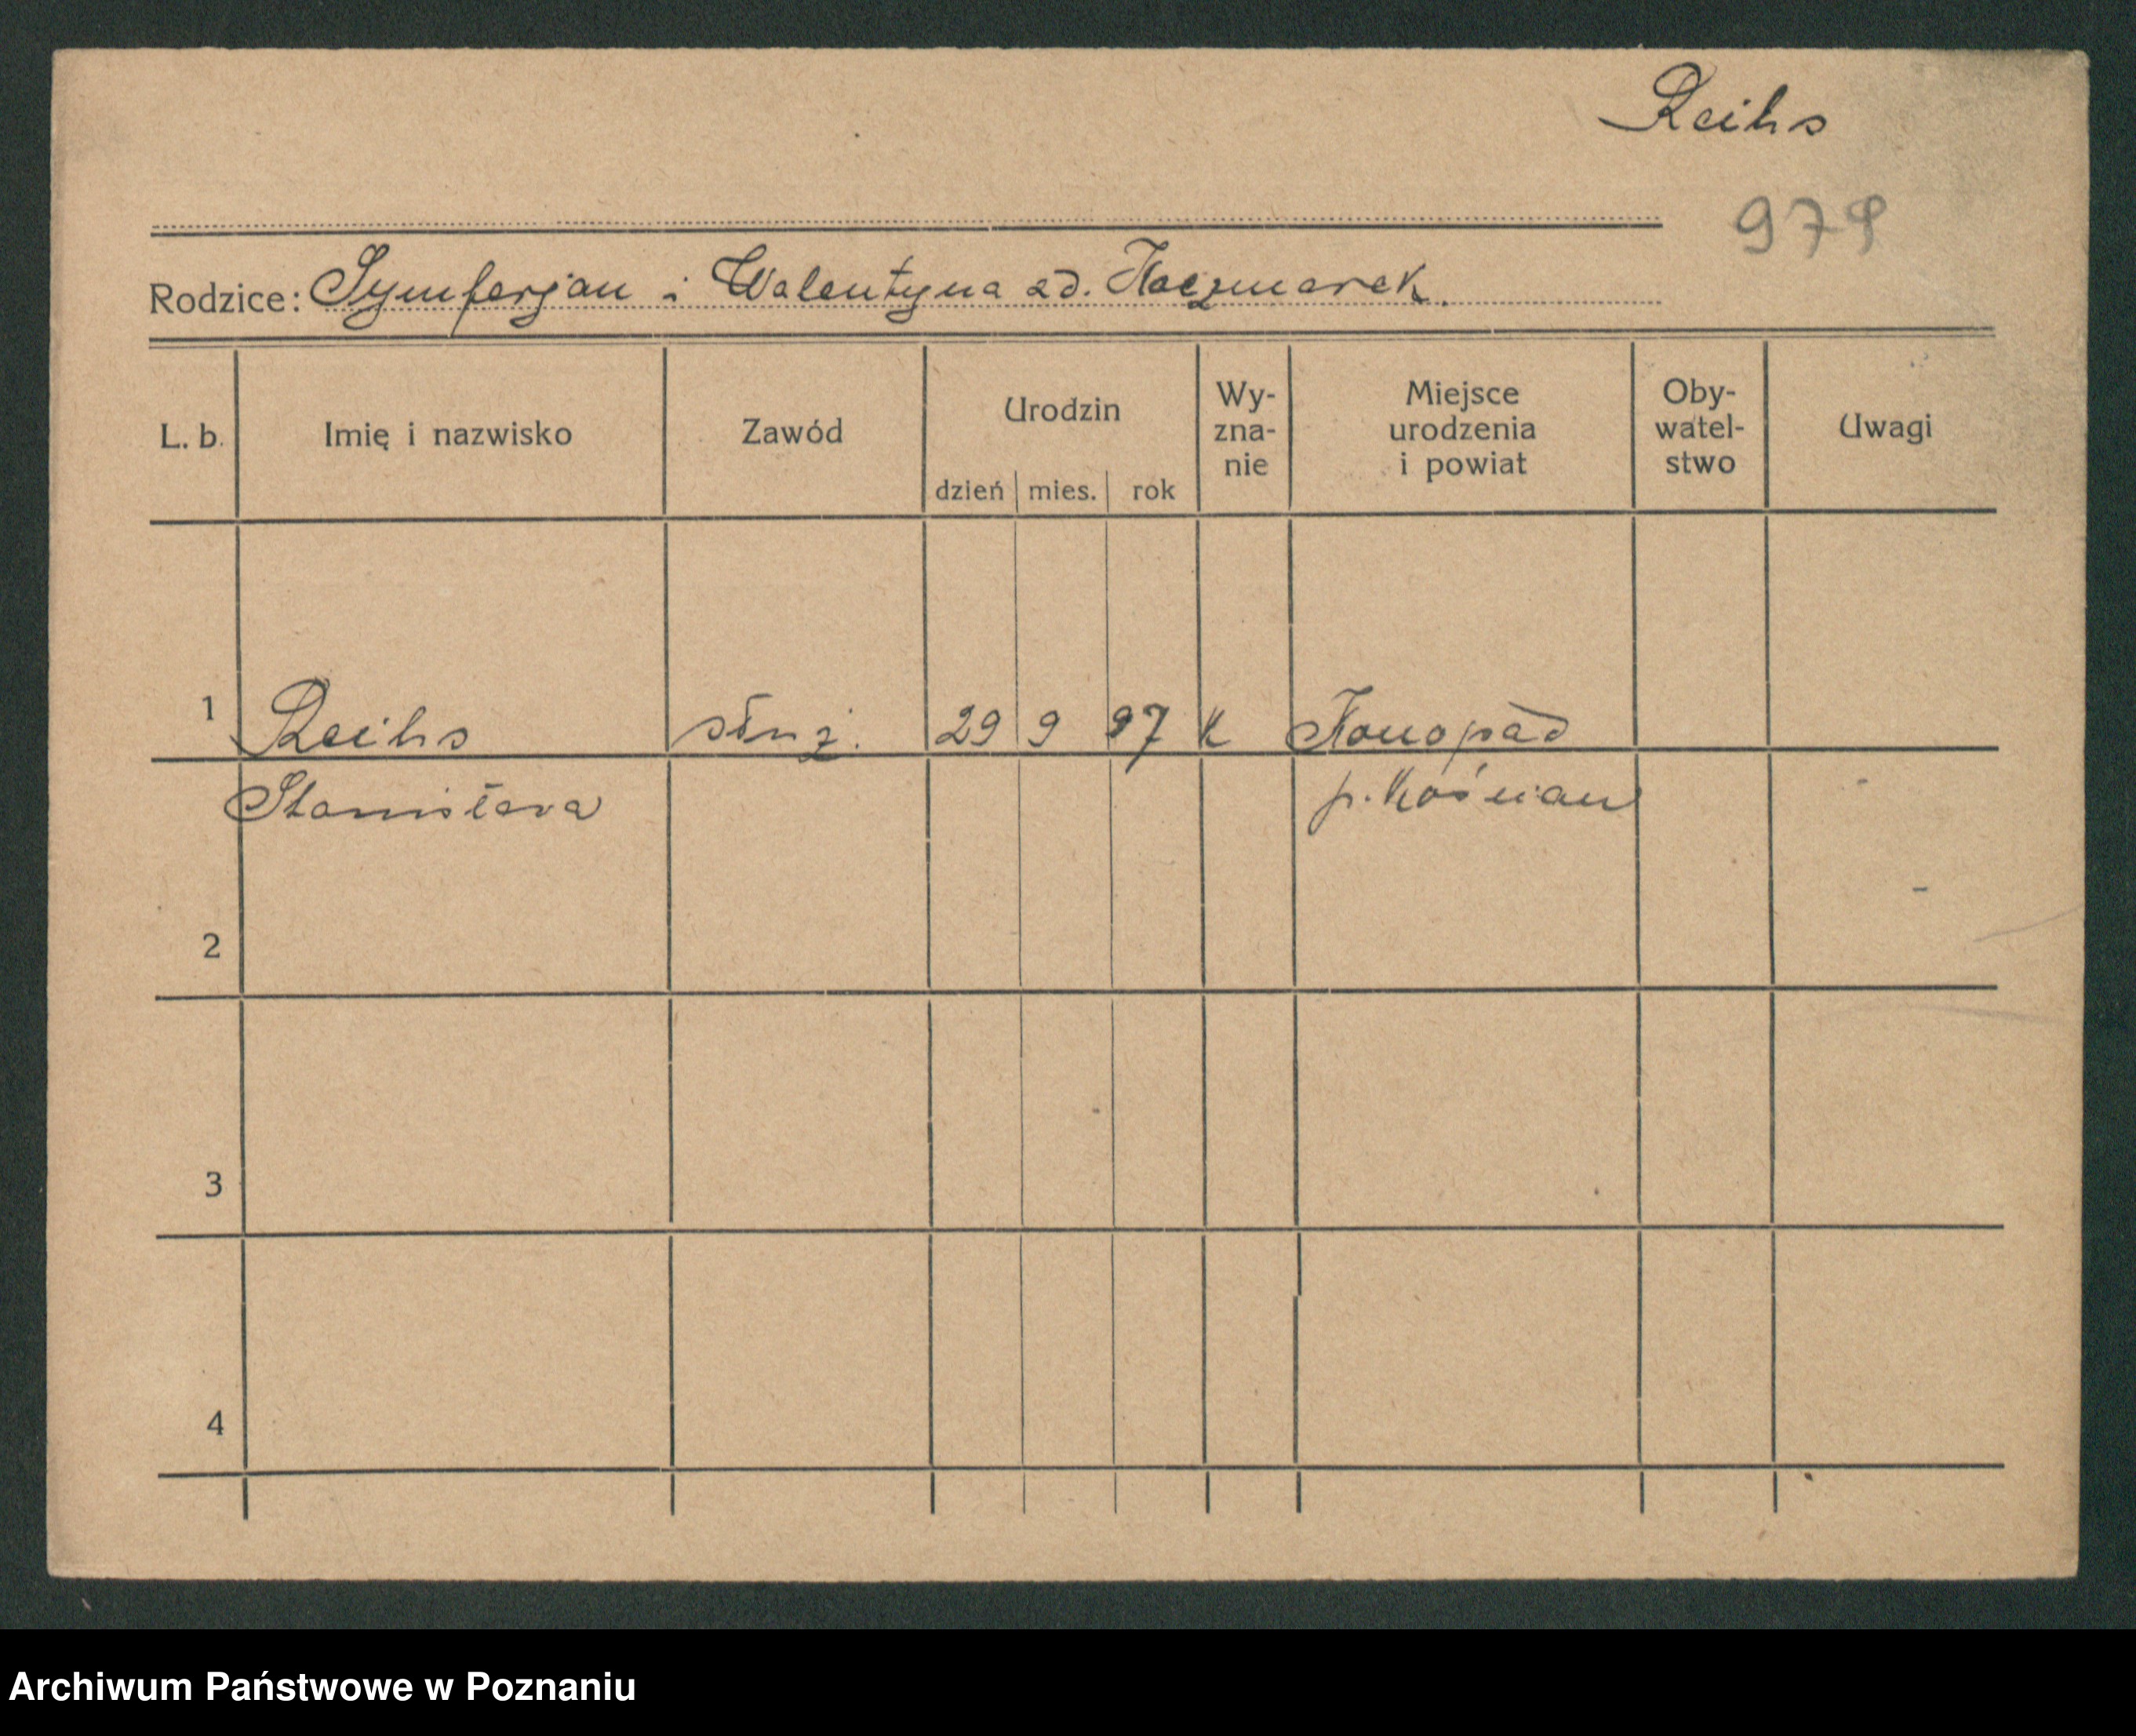 Reihs
979
Rodzice: Symferjan i Walentyna zd. Kaczmarek.
L. b. Imię i nazwisko Zawód Urodzin dzień mies. rok Wy- zna- nie Miejsce urodzenia i powiat Oby- watel- stwo Uwagi
1 Reihs służ. 29 9 97 k Konopad
Stanisława p. Kościan
2
3
4
Archiwum Państwowe w Poznaniu